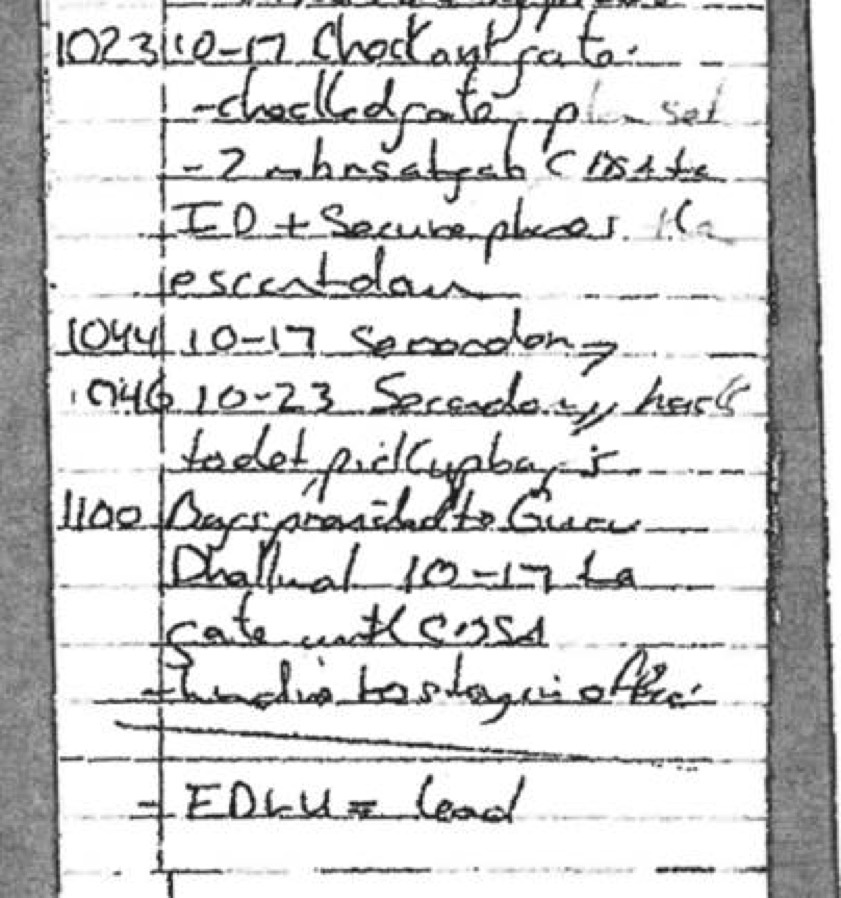 1023 10-17 Check out gate.
- checked gate, plan set
- 2 mbrs at gate CBSA to
ID + Secure phones. to
escort down
1044 10-17 Secondary
1046 10-23 Secondary, back
to det, pick up bags
1100 Bags provided to Guru
Dhaliwal 10-17 to
gate with CBSA
- to stay in office.
- EDLU = lead